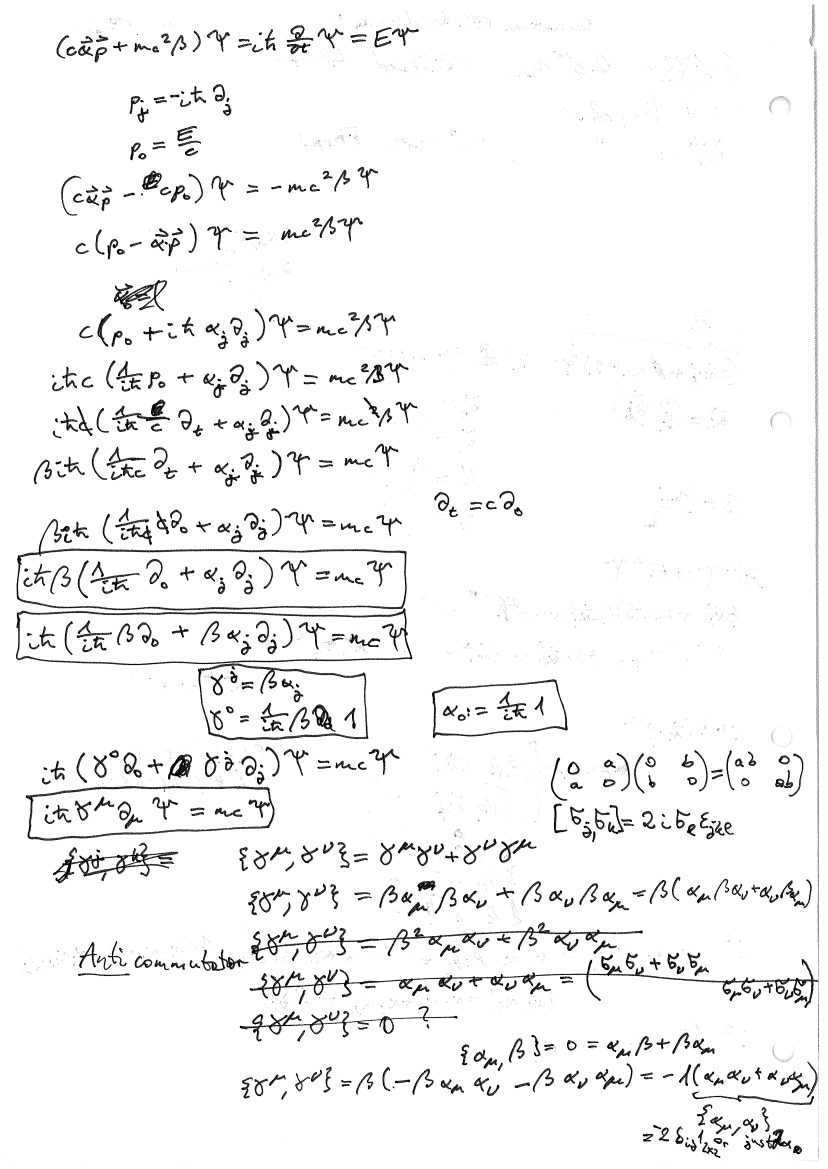 (cα⃗p⃗ + mc²β)Ψ = iħ ∂/∂t Ψ = EΨ
p_j = -iħ ∂_j
p₀ = E/c
(cα⃗p⃗ - cp₀)Ψ = -mc²βΨ
c(p₀ - α⃗p⃗)Ψ = mc²βΨ
c(p₀ + iħ α_j∂_j)Ψ = mc²βΨ
iħc (1/iħ p₀ + α_j∂_j)Ψ = mc²βΨ
iħc (1/iħc ∂_t + α_j∂_j)Ψ = mc²βΨ
βiħ (1/iħc ∂_t + α_j∂_j)Ψ = mcΨ
∂_t = c∂₀
βiħ (1/iħc c∂₀ + α_j∂_j)Ψ = mcΨ
iħβ(1/iħ ∂₀ + α_j∂_j)Ψ = mcΨ
iħ(1/iħ β∂₀ + βα_j∂_j)Ψ = mcΨ
γ^j = βα_j
γ⁰ = 1/iħ β 1
α₀ := 1/iħ 1
iħ (γ⁰∂₀ + γ^j∂_j)Ψ = mcΨ
(0 a; a 0)(0 b; b 0) = (ab 0; 0 ab)
iħγ^μ∂_μ Ψ = mcΨ
[σ_j, σ_k] = 2iσ_l ε_jkl
{γ^j, γ^k} =
{γ^μ, γ^ν} = γ^μγ^ν + γ^νγ^μ
{γ^μ, γ^ν} = βα_μ βα_ν + βα_ν βα_μ = β(α_μβα_ν + α_νβα_μ)
{γ^μ, γ^ν} = β²α_μα_ν + β²α_να_μ
Anti commutator
{γ^μ, γ^ν} = α_μα_ν + α_να_μ = (σ_μσ_ν + σ_νσ_μ σ_μσ_ν + σ_νσ_μ)
{γ^μ, γ^ν} = 0 ?
{α_μ, β} = 0 = α_μβ + βα_μ
{γ^μ, γ^ν} = β(-βα_μα_ν - βα_να_μ) = -1(α_μα_ν + α_να_μ)
{α_μ, α_ν}
= -2δ_ij 1_2x2 or just